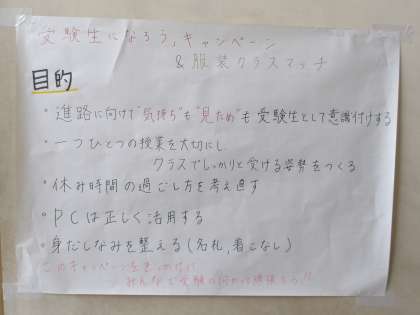 受験生になろう,キャンペーン
&服装クラスマッチ
目的
・進路に向けて"気持ち"も"見ため"も受験生として意識付けする
・一つひとつの授業を大切にし
クラスでしっかりと受ける姿勢をつくる
・休み時間の過ごし方を考え直す
・PCは正しく活用する
・身だしなみを整える(名札,着こなし)
このキャンペーンをきっかけに
みんなで受験に向かって頑張ろう!!